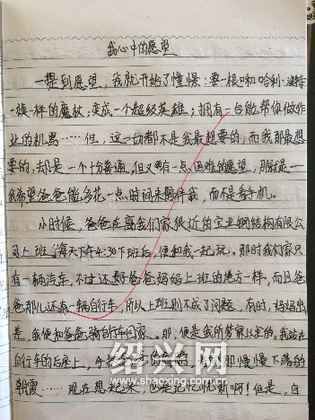 我心中的愿望
一提到愿望，我就开始了憧憬：要一根和哈利·波特
一模一样的魔杖；变成一个超级英雄；拥有一台能帮你做作
业的机器……但，这一切都不是我最想要的，而我那最想
要的，却是一个十分普通，但又有一点困难的愿望，那就是——
我希望爸爸能多花一点时间来陪伴我，而不是看手机。
小时候，爸爸在离我们家较近的宝业钢结构有限公
司上班，每天下午4:30下班后，便和我一起玩。那时我们家只
有一辆汽车，不过还好爸爸妈妈上班的地方一样，而且爸
爸那儿还有一辆自行车，所以上班则不成了问题。有时，妈妈出
差，我便和爸爸骑自行车回家。那，便是我所梦寐以求的。我站在
自行车的后座上，
那慢慢下落的
朝霞……现在想起来，也是记忆犹新啊！但是，自
绍兴网
www.shaoxing.com.cn